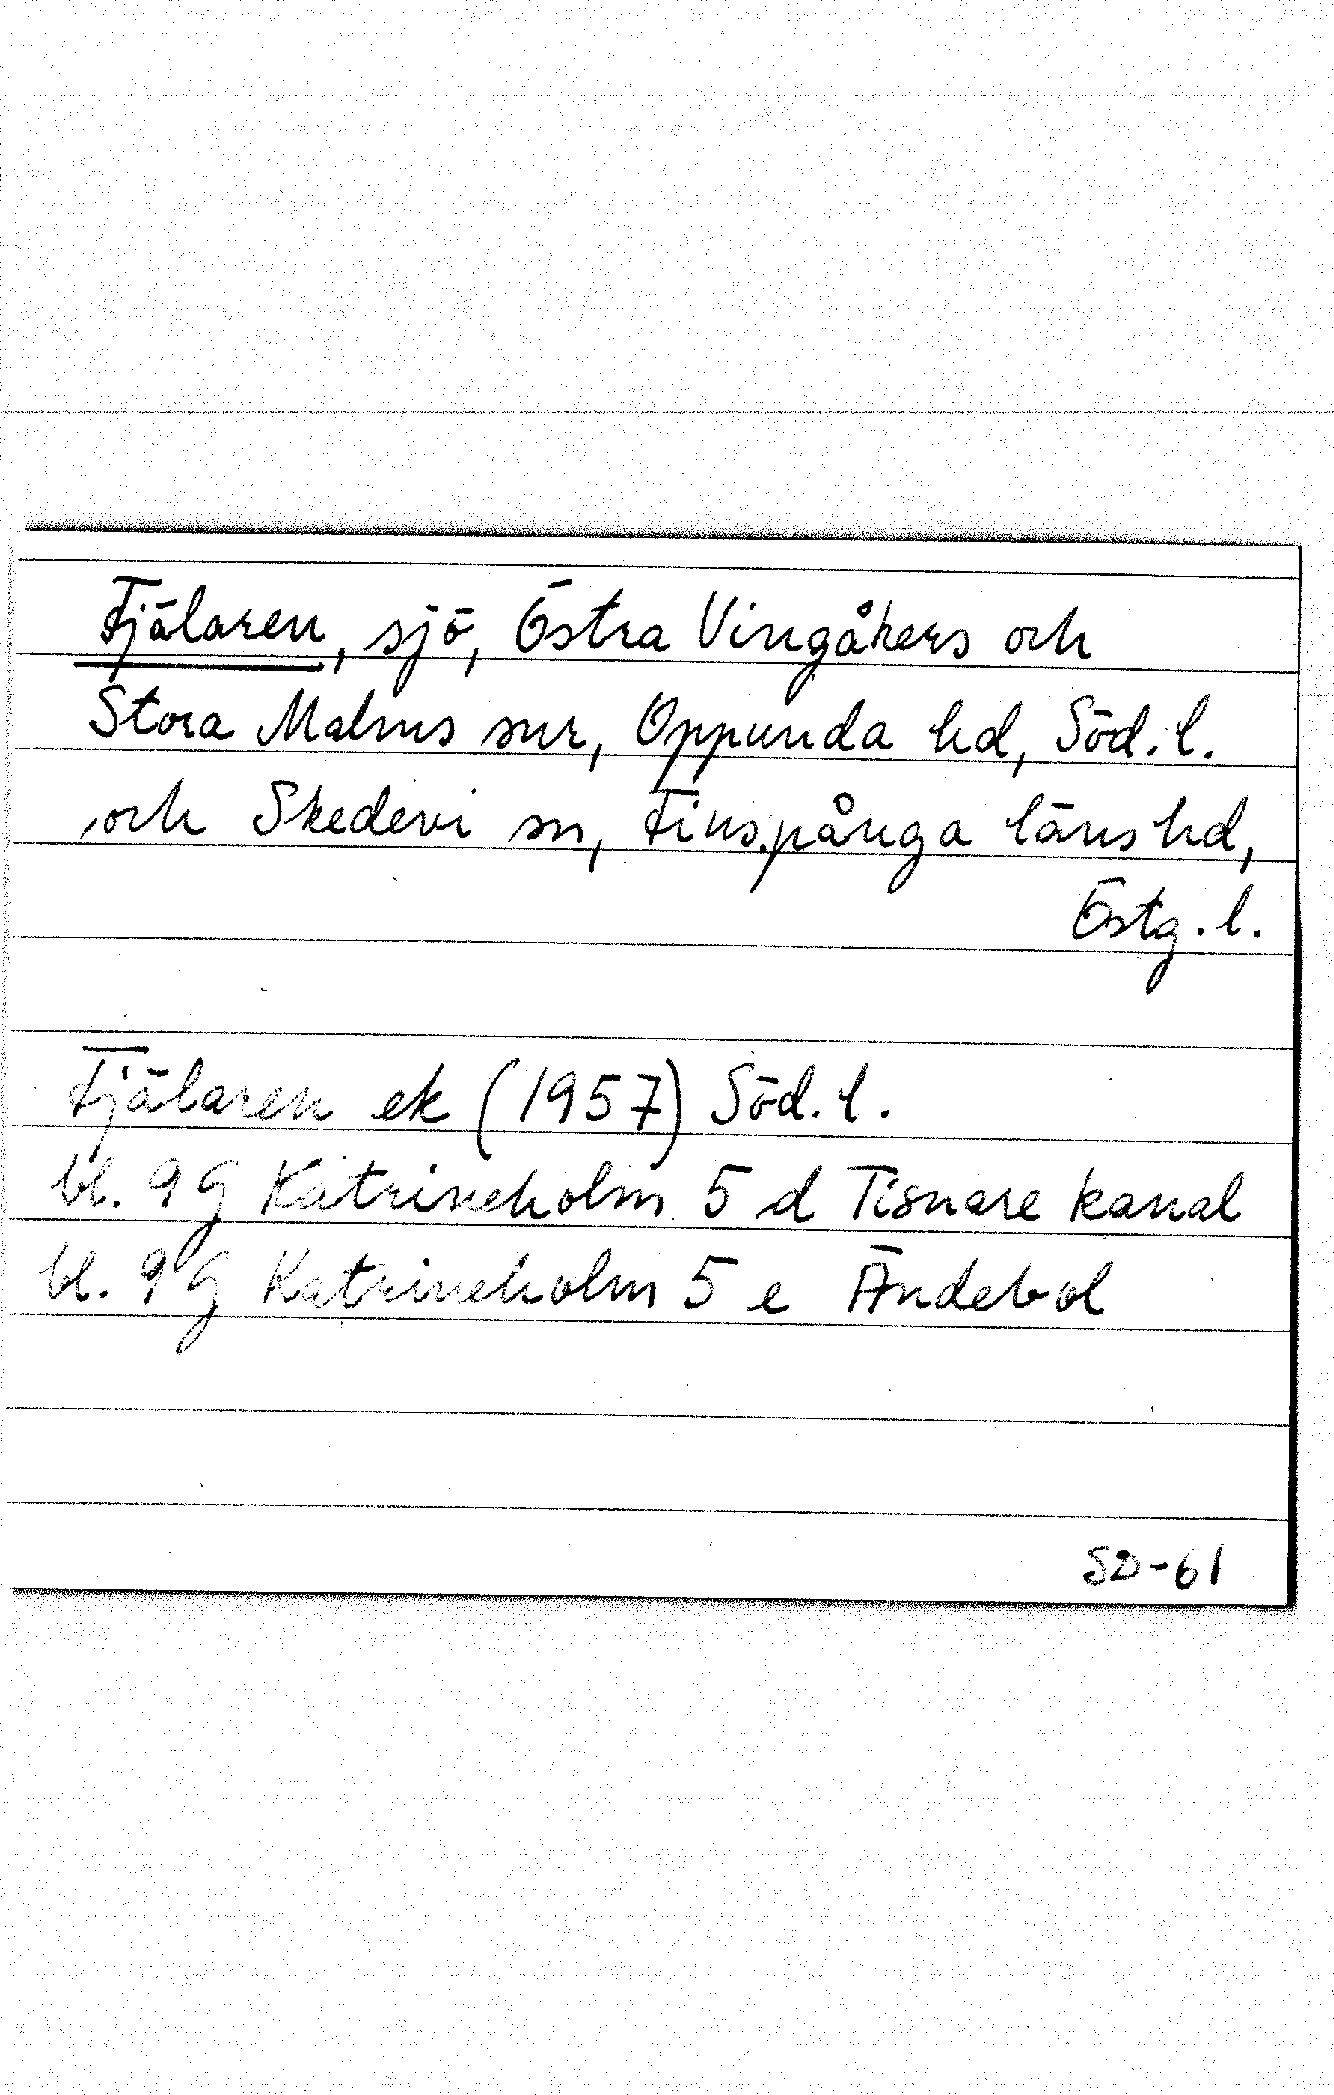 Fjälaren, sjö, Östra Vingåkers och
Stora Malms snr, Oppunda hd, Söd. l.
och Skedevi sn, Finspånga läns hd,
Östg. l.
Fjälaren ek (1957) Söd. l.
bl. 9G Katrineholm 5 d Tisnare kanal
bl. 9G Katrineholm 5 e Ändebol
SD-61